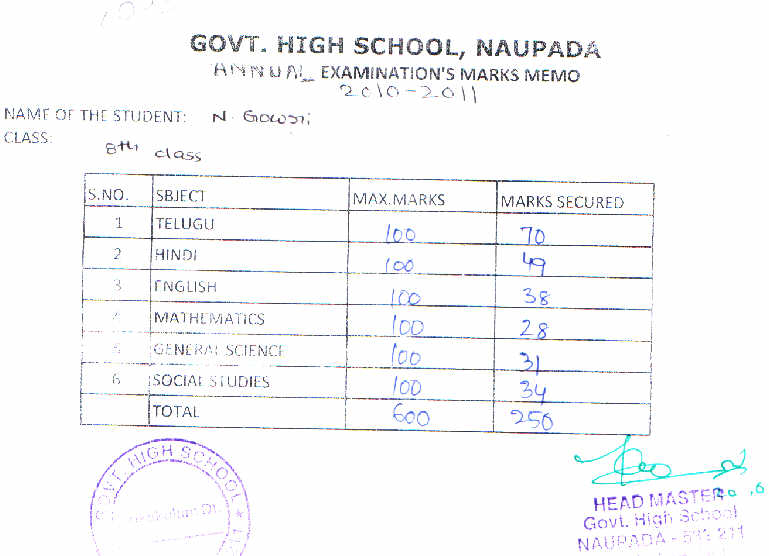 GOVT. HIGH SCHOOL, NAUPADA
ANNUAL EXAMINATION'S MARKS MEMO
2010-2011
NAME OF THE STUDENT: N. Gowri
CLASS: 8th class
S.NO. SBJECT MAX.MARKS MARKS SECURED
1 TELUGU 100 70
2 HINDI 100 49
3 ENGLISH 100 38
4 MATHEMATICS 100 28
5 GENERAL SCIENCE 100 31
6 SOCIAL STUDIES 100 34
TOTAL 600 250
GOVT. HIGH SCHOOL
HEAD MASTER
Govt. High School
NAUPADA